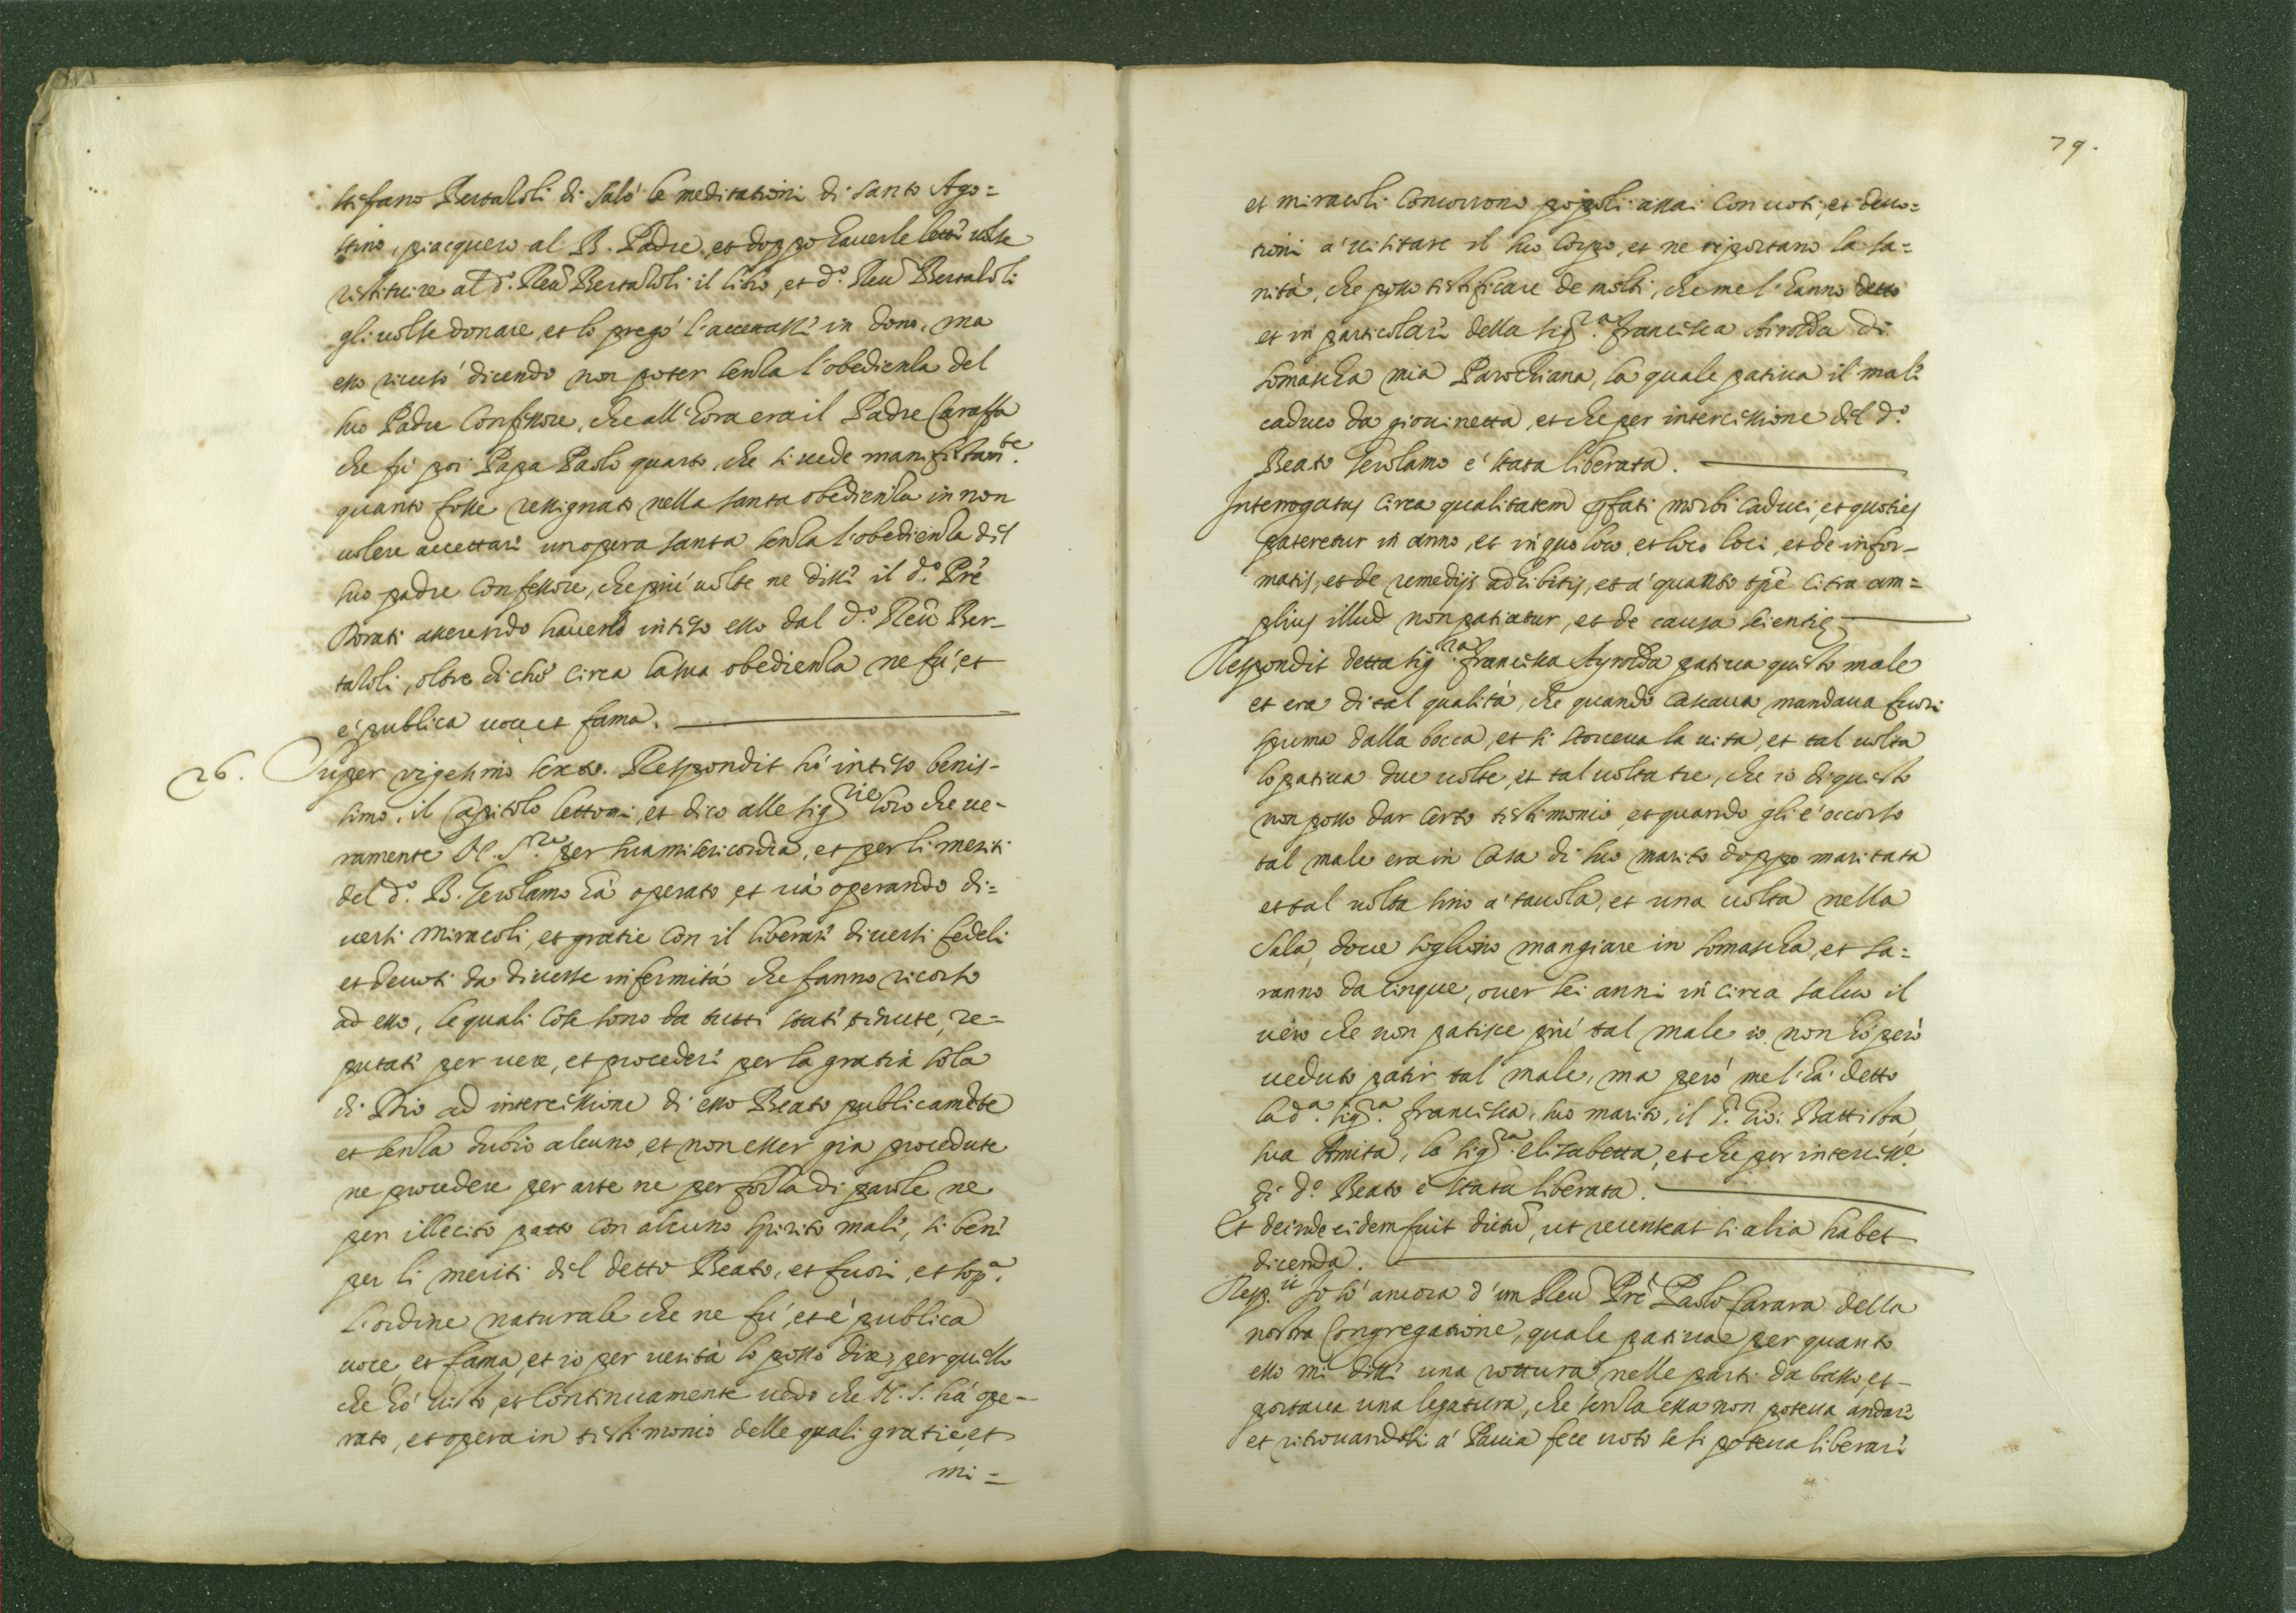 Stefano Bertaloli di Salò le meditationi di santo Ago=
stino, piacquero al B. Padre, et doppo hauerle lette uolse
restituire al d.º Reu.º Bertaloli il libro, et d.º Reu.º Bertaloli
gli uolse donare, et lo pregò l'accettasse in dono, ma
esso ricusò dicendo non poter senza l'obedienza del
suo Padre Confessore, che all'hora era il Padre Caraffa
che fù poi Papa Paolo quarto, che si uede manifestam.te
quanto fosse ressignato nella santa obedienza in non
uolere accettare un opera santa senza l'obedienza del
suo padre Confessore, che più uolte ne disse il d.º Pre
Dorati asserendo hauerlo inteso esso dal d.º Reu.º Ber-
taloli, oltre di che circa la sua obedienza ne fù, et
è publica uoce et fama.
26. Super vigesimo sexto. Respondit hò inteso benis-
simo, il Capitolo lettomi, et dico alle sig.rie loro che ue-
ramente N. S.re per sua misericordia, et per li meriti
del d.º B. Gerolamo hà operato, et uà operando di=
uersi miracoli, et gratie con il liberare diuersi fedeli
et deuoti da diuerse infermità che fanno ricorso
ad esso, le quali cose sono da tutti state tenute, re=
putate per uere, et procedere per la gratia sola
di Dio ad intercessione di esso Beato publicamēte
et senza dubio alcuno, et non esser gia procedute
ne procedere per arte ne per forza di parole ne
per illecito patto con alcuno spirito male, si bene
per li meriti del detto Beato, et fuori, et sop.a
l'ordine naturale che ne fù, et è publica
uoce, et fama, et io per uerità lo posso dire, per quello
che hò uisto, et continuamente uedo che N. S. hà ope-
rato, et opera in testimonio delle quali gratie, et
mi=
79.
et miracoli concorrono popoli assai con uoti, et deuo=
tioni a' uisitare il suo corpo, et ne riportano la sa=
nità, che posso testificare de molti, che me l'hanno detto
et in particolare della sig.ra Francisca Airolda di
Somascha mia Parochiana, la quale patiua il male
caduco da giouinetta, et che per intercessione del d.º
Beato Gerolamo è stata liberata.
Interrogatus circa qualitatem pfati morbi caduci, et quoties
pateretur in anno, et in quo loco, et loco loci, et de infor-
matis, et de remedijs adhibitis, et a' quanto tpe citra am=
plius illud non patiatur, et de causa scientię
Respondit detta sig.ra Francisca Ayrolda patiua questo male
et era di tal qualità, che quando cascaua mandaua fuori
spuma dalla bocca, et si storceua la uita, et tal uolta
lo patiua due uolte, et tal uolta tre, che io di questo
non posso dar certo testimonio, et quando gli è occorso
tal male era in casa di suo marito doppo maritata
et tal uolta sino a' tauola, et una uolta nella
Sala, doue sogliono mangiare in Somascha, et sa=
ranno da cinque, ouer sei anni in circa saluo il
uero che non patisce più tal male io non hò però
ueduto patir tal male, ma però me l'hà detto
la d.a sig.ra Francisca, suo marito, il S. Gio: Battista,
sua Amita, la sig.ra elisabetta, et che per intercess.e
di d.º Beato è stata liberata.
Et deinde eidem fuit dictū, ut recenseat si alia habet
dicenda.
Resp.it Io sò ancora d'un Reu.º Pre Paolo Carara della
nostra Congregatione, quale patiua per quanto
esso mi disse una rottura nelle parti da basso, et
portaua una legatura, che senza essa non poteua andare
et ritrouandosi a' Pauia fece uoto se si poteua liberare